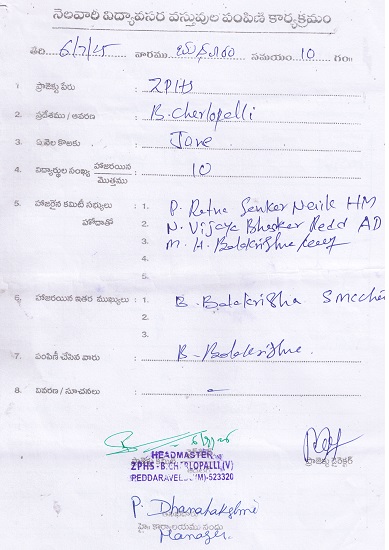 నెలవారి విద్యావసర వస్తువుల పంపిణి కార్యక్రమం
తేది 6/7/15 వారము బుధవారం సమయం 10 గం॥
1 ప్రాజెక్టు పేరు ZPHS
2. ప్రదేశము / ఆవరణ B. cherlopalli
3. ఏ నెల కొఱకు June
4. విద్యార్థుల సంఖ్య హాజరయిన మొత్తము 10
5. హాజరైన కమిటీ సభ్యులు 1. P. Ratna Senker Neiik HM
హోదాతో 2. N. Vijaya Bhasker Redd AD
3. M. H. Balakrishna
4.
5.
6. హాజరయిన ఇతర ముఖ్యులు 1. B. Balakrisha SMC
2.
3.
7. పంపిణీ చేసిన వారు B. Balakrishna.
8. వివరణ / సూచనలు –
HEADMASTER
ZPHS - B.CHERLOPALLI,(V)
PEDDARAVEEDU(M)-523320
ప్రాజెక్ట్ డైరెక్టర్
P. Dhanalakshmi
Manager